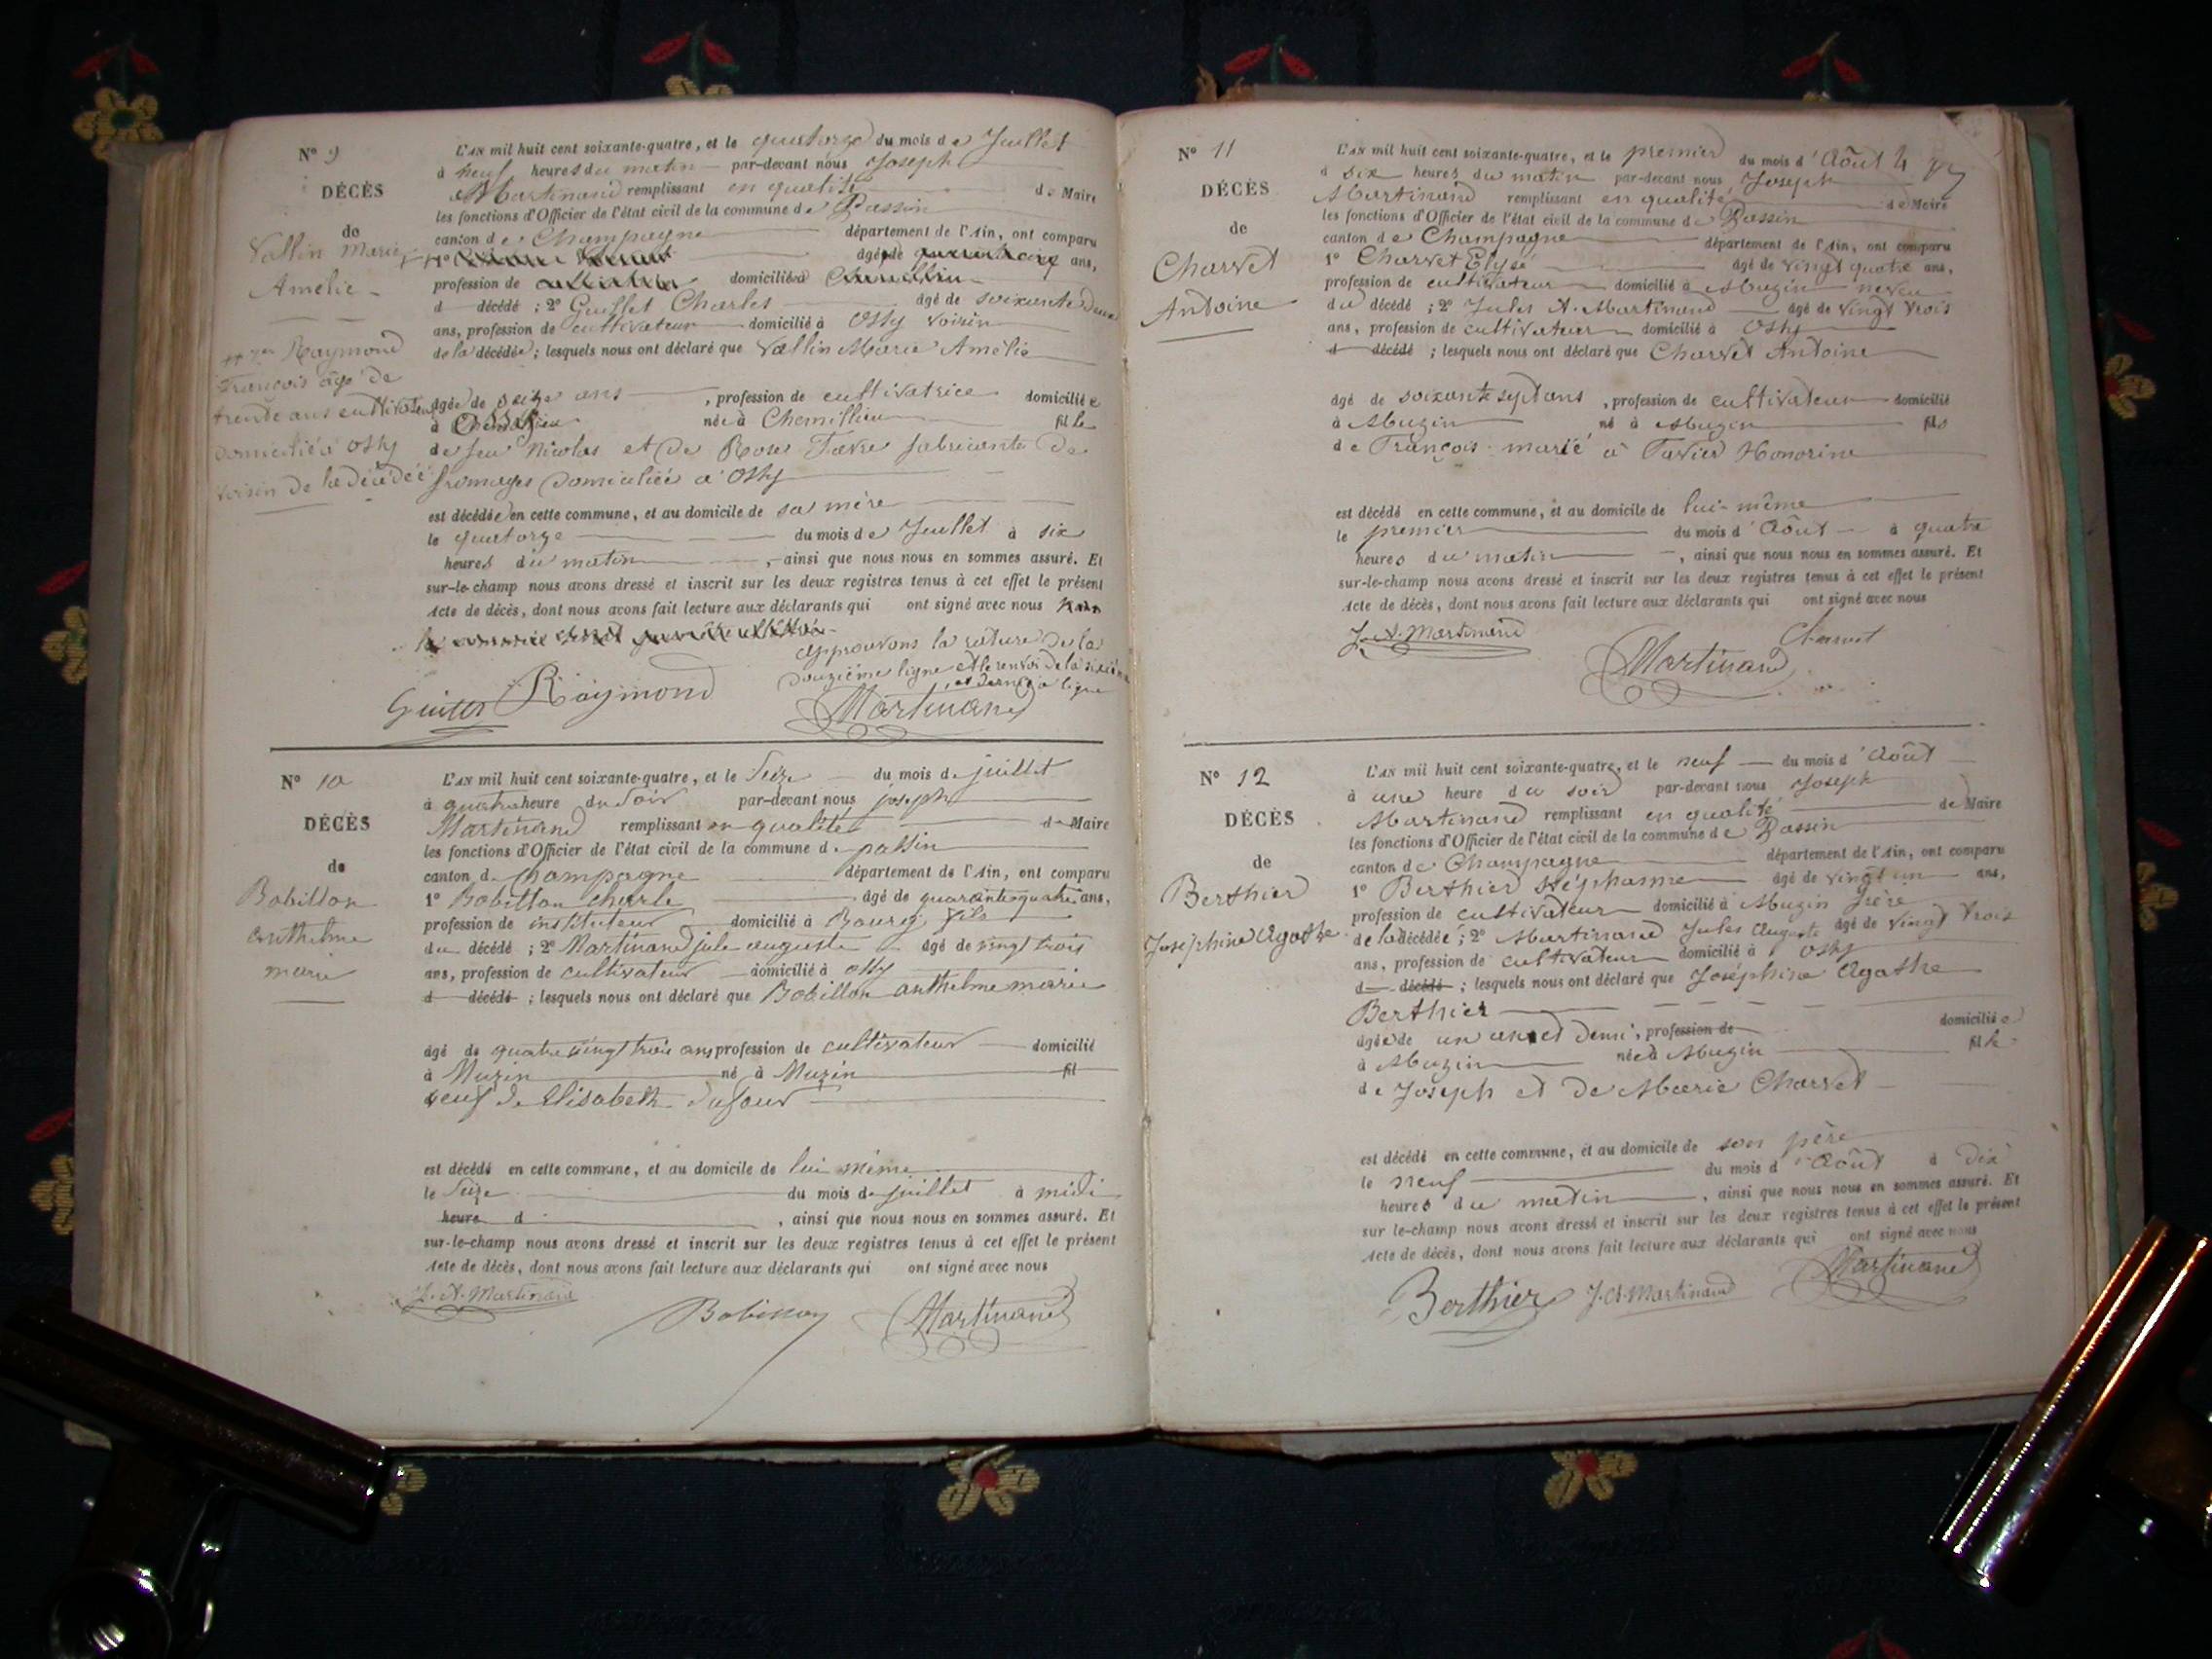 N° 9
DÉCÈS
de
Vallin Marie
Amélie
++ 1er Raymond
François âgé de
trente ans cultivateur
domicilié à Ossy
voisin de la décédée
L'AN mil huit cent soixante-quatre, et le quatorze du mois de Juillet
à neuf heures du matin par-devant nous Joseph
Martinand remplissant en qualité de Maire
les fonctions d'Officier de l'état civil de la commune de Passin
canton de Champagne département de l'Ain, ont comparu
1° âgé de ans,
profession de domicilié à
d décédé ; 2° Guillet Charles âgé de soixante deux
ans, profession de cultivateur domicilié à Ossy voisin
de la décédée ; lesquels nous ont déclaré que Vallin Marie Amélie
âgée de seize ans , profession de cultivatrice domiciliée
à née à Chemillieu fille
de feu Nicolas et de Rose Favre fabricante de
fromages domiciliée à Ossy
est décédée en cette commune, et au domicile de sa mère
le quatorze du mois de Juillet à six
heures du matin , ainsi que nous nous en sommes assuré. Et
sur-le-champ nous avons dressé et inscrit sur les deux registres tenus à cet effet le présent
Acte de décès, dont nous avons fait lecture aux déclarants qui ont signé avec nous
approuvons la rature de la
douzième ligne et le renvoi de la
et dernière ligne
Raymond
Martinand
N° 10
DÉCÈS
de
Bobillon
anthelme
marie
L'AN mil huit cent soixante-quatre, et le seize du mois de juillet
à quatre heure du soir par-devant nous joseph
Martinand remplissant en qualité de Maire
les fonctions d'Officier de l'état civil de la commune de passin
canton de champagne département de l'Ain, ont comparu
1° Bobillon charle âgé de quarante quatre ans,
profession de instituteur domicilié à Bourg fils
du décédé ; 2° Martinand jule auguste âgé de vingt trois
ans, profession de cultivateur domicilié à ossy
d décédé ; lesquels nous ont déclaré que Bobillon anthelme marie
âgé de quatre vingt trois ans profession de cultivateur domicilié
à Muzin né à Muzin fil
veuf de Elisabeth dufour
est décédé en cette commune, et au domicile de lui même
le seize du mois de juillet à midi
heure d , ainsi que nous nous en sommes assuré. Et
sur-le-champ nous avons dressé et inscrit sur les deux registres tenus à cet effet le présent
Acte de décès, dont nous avons fait lecture aux déclarants qui ont signé avec nous
J. A. Martinand
Bobillon Martinand
N° 11
DÉCÈS
de
Charvet
Antoine
L'AN mil huit cent soixante-quatre, et le premier du mois d'Août
à six heures du matin par-devant nous Joseph
Martinand remplissant en qualité de Maire
les fonctions d'Officier de l'état civil de la commune de Passin
canton de Champagne département de l'Ain, ont comparu
1° Charvet Elysé âgé de vingt quatre ans,
profession de cultivateur domicilié à Muzin neveu
du décédé ; 2° Jules A. Martinand âgé de vingt trois
ans, profession de cultivateur domicilié à Ossy
d décédé ; lesquels nous ont déclaré que Charvet Antoine
âgé de soixante sept ans , profession de cultivateur domicilié
à Muzin né à Muzin fils
de François marié à Tavier Honorine
est décédé en cette commune, et au domicile de lui-même
le premier du mois d'Août à quatre
heures du matin , ainsi que nous nous en sommes assuré. Et
sur-le-champ nous avons dressé et inscrit sur les deux registres tenus à cet effet le présent
Acte de décès, dont nous avons fait lecture aux déclarants qui ont signé avec nous
J. A. Martinand Charvet
Martinand
N° 12
DÉCÈS
de
Berthier
Joséphine Agathe
L'AN mil huit cent soixante-quatre, et le neuf du mois d'Août
à une heure du soir par-devant nous Joseph
Martinand remplissant en qualité de Maire
les fonctions d'Officier de l'état civil de la commune de Passin
canton de Champagne département de l'Ain, ont comparu
1° Berthier Stéphanne âgé de vingt un ans,
profession de cultivateur domicilié à Muzin frère
de la décédée ; 2° Martinand Jules Auguste âgé de vingt trois
ans, profession de cultivateur domicilié à Ossy
d décédé ; lesquels nous ont déclaré que Joséphine Agathe
Berthier
âgée de un an et demi , profession de domiciliée
à Muzin née à Muzin fille
de Joseph et de Marie Charvet
est décédé en cette commune, et au domicile de son père
le neuf du mois d'Août à dix
heures du matin , ainsi que nous nous en sommes assuré. Et
sur le-champ nous avons dressé et inscrit sur les deux registres tenus à cet effet le présent
Acte de décès, dont nous avons fait lecture aux déclarants qui ont signé avec nous
Berthier J. A. Martinand Martinand